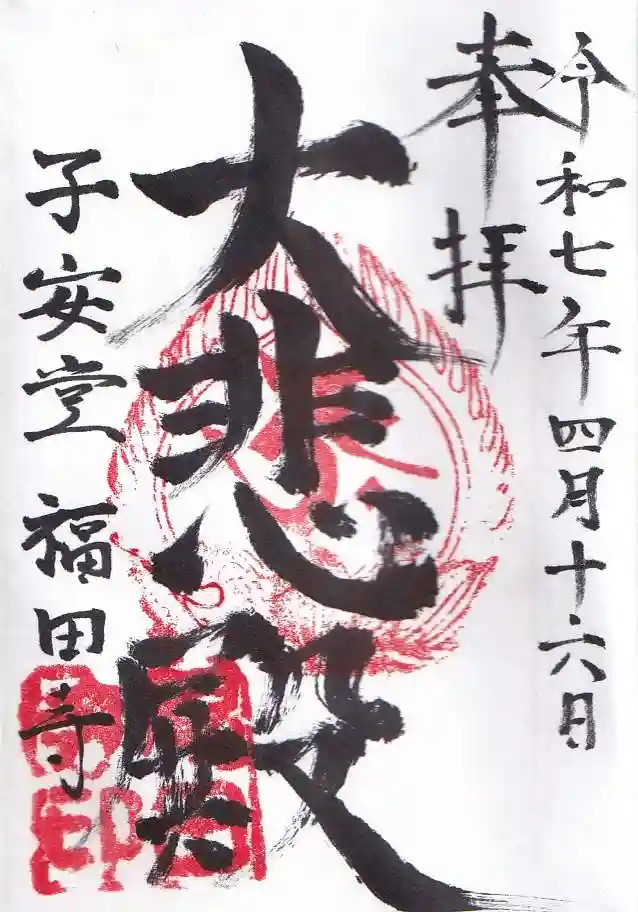 令和七年四月十六日
奉拝
大悲殿
子安堂 福田寺